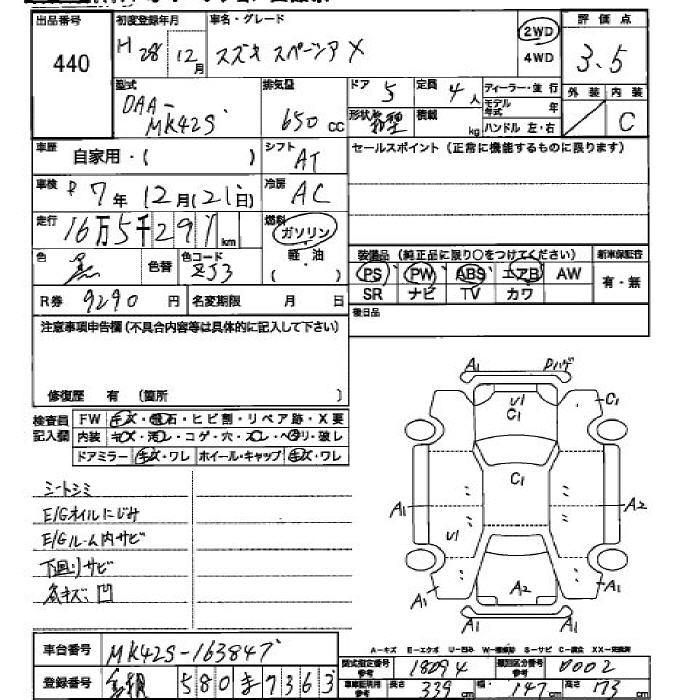 出品番号 初度登録年月 車名・グレード 2WD 評価点
440 H28 12月 スズキ スペーシア X 4WD 3.5
型式 排気量 ドア 5 定員 4人 ディーラー・並行 外装 内装
DAA- 形状 箱型 積載 kg モデル年式 年
MK42S 650cc ハンドル 左・右 C
車歴 自家用・( ) シフト AT セールスポイント(正常に機能するものに限ります)
車検 R7年12月(21日) 冷房 AC
走行 16万5千297km 燃料 ガソリン
色 黒 色替 色コード ZJ3 軽・油 ( ) 装備品(純正品に限り○をつけてください) 新車保証書
PS PW ABS エアB AW 有・無
R券 9290円 名変期限 月 日 SR ナビ TV カワ
注意事項申告欄(不具合内容等は具体的に記入して下さい) 後日品
修復歴 有 (箇所 )
検査員 FW キズ・飛石・ヒビ割・リペア跡・X要
記入欄 内装 キズ・汚レ・コゲ・穴・スレ・ヘタリ・破レ
ドアミラー キズ・ワレ ホイール・キャップ キズ・ワレ
A1 Dハゲ
U1 C1
C1
C1
A1 A2
U1
A2
A1 A1
A1
シートシミ
E/Gオイルにじみ
E/Gルーム内サビ
下回りサビ
各キズ、凹
A-キズ E-エクボ U-凹み W-補修跡 S-サビ C-腐食 XX-交換済
車台番号 MK42S-163847 型式指定番号 参考 18094 類別区分番号 参考 0002
登録番号 580 ま 7363 車車証明用 参考 長さ 339cm 幅 147cm 高さ 173cm